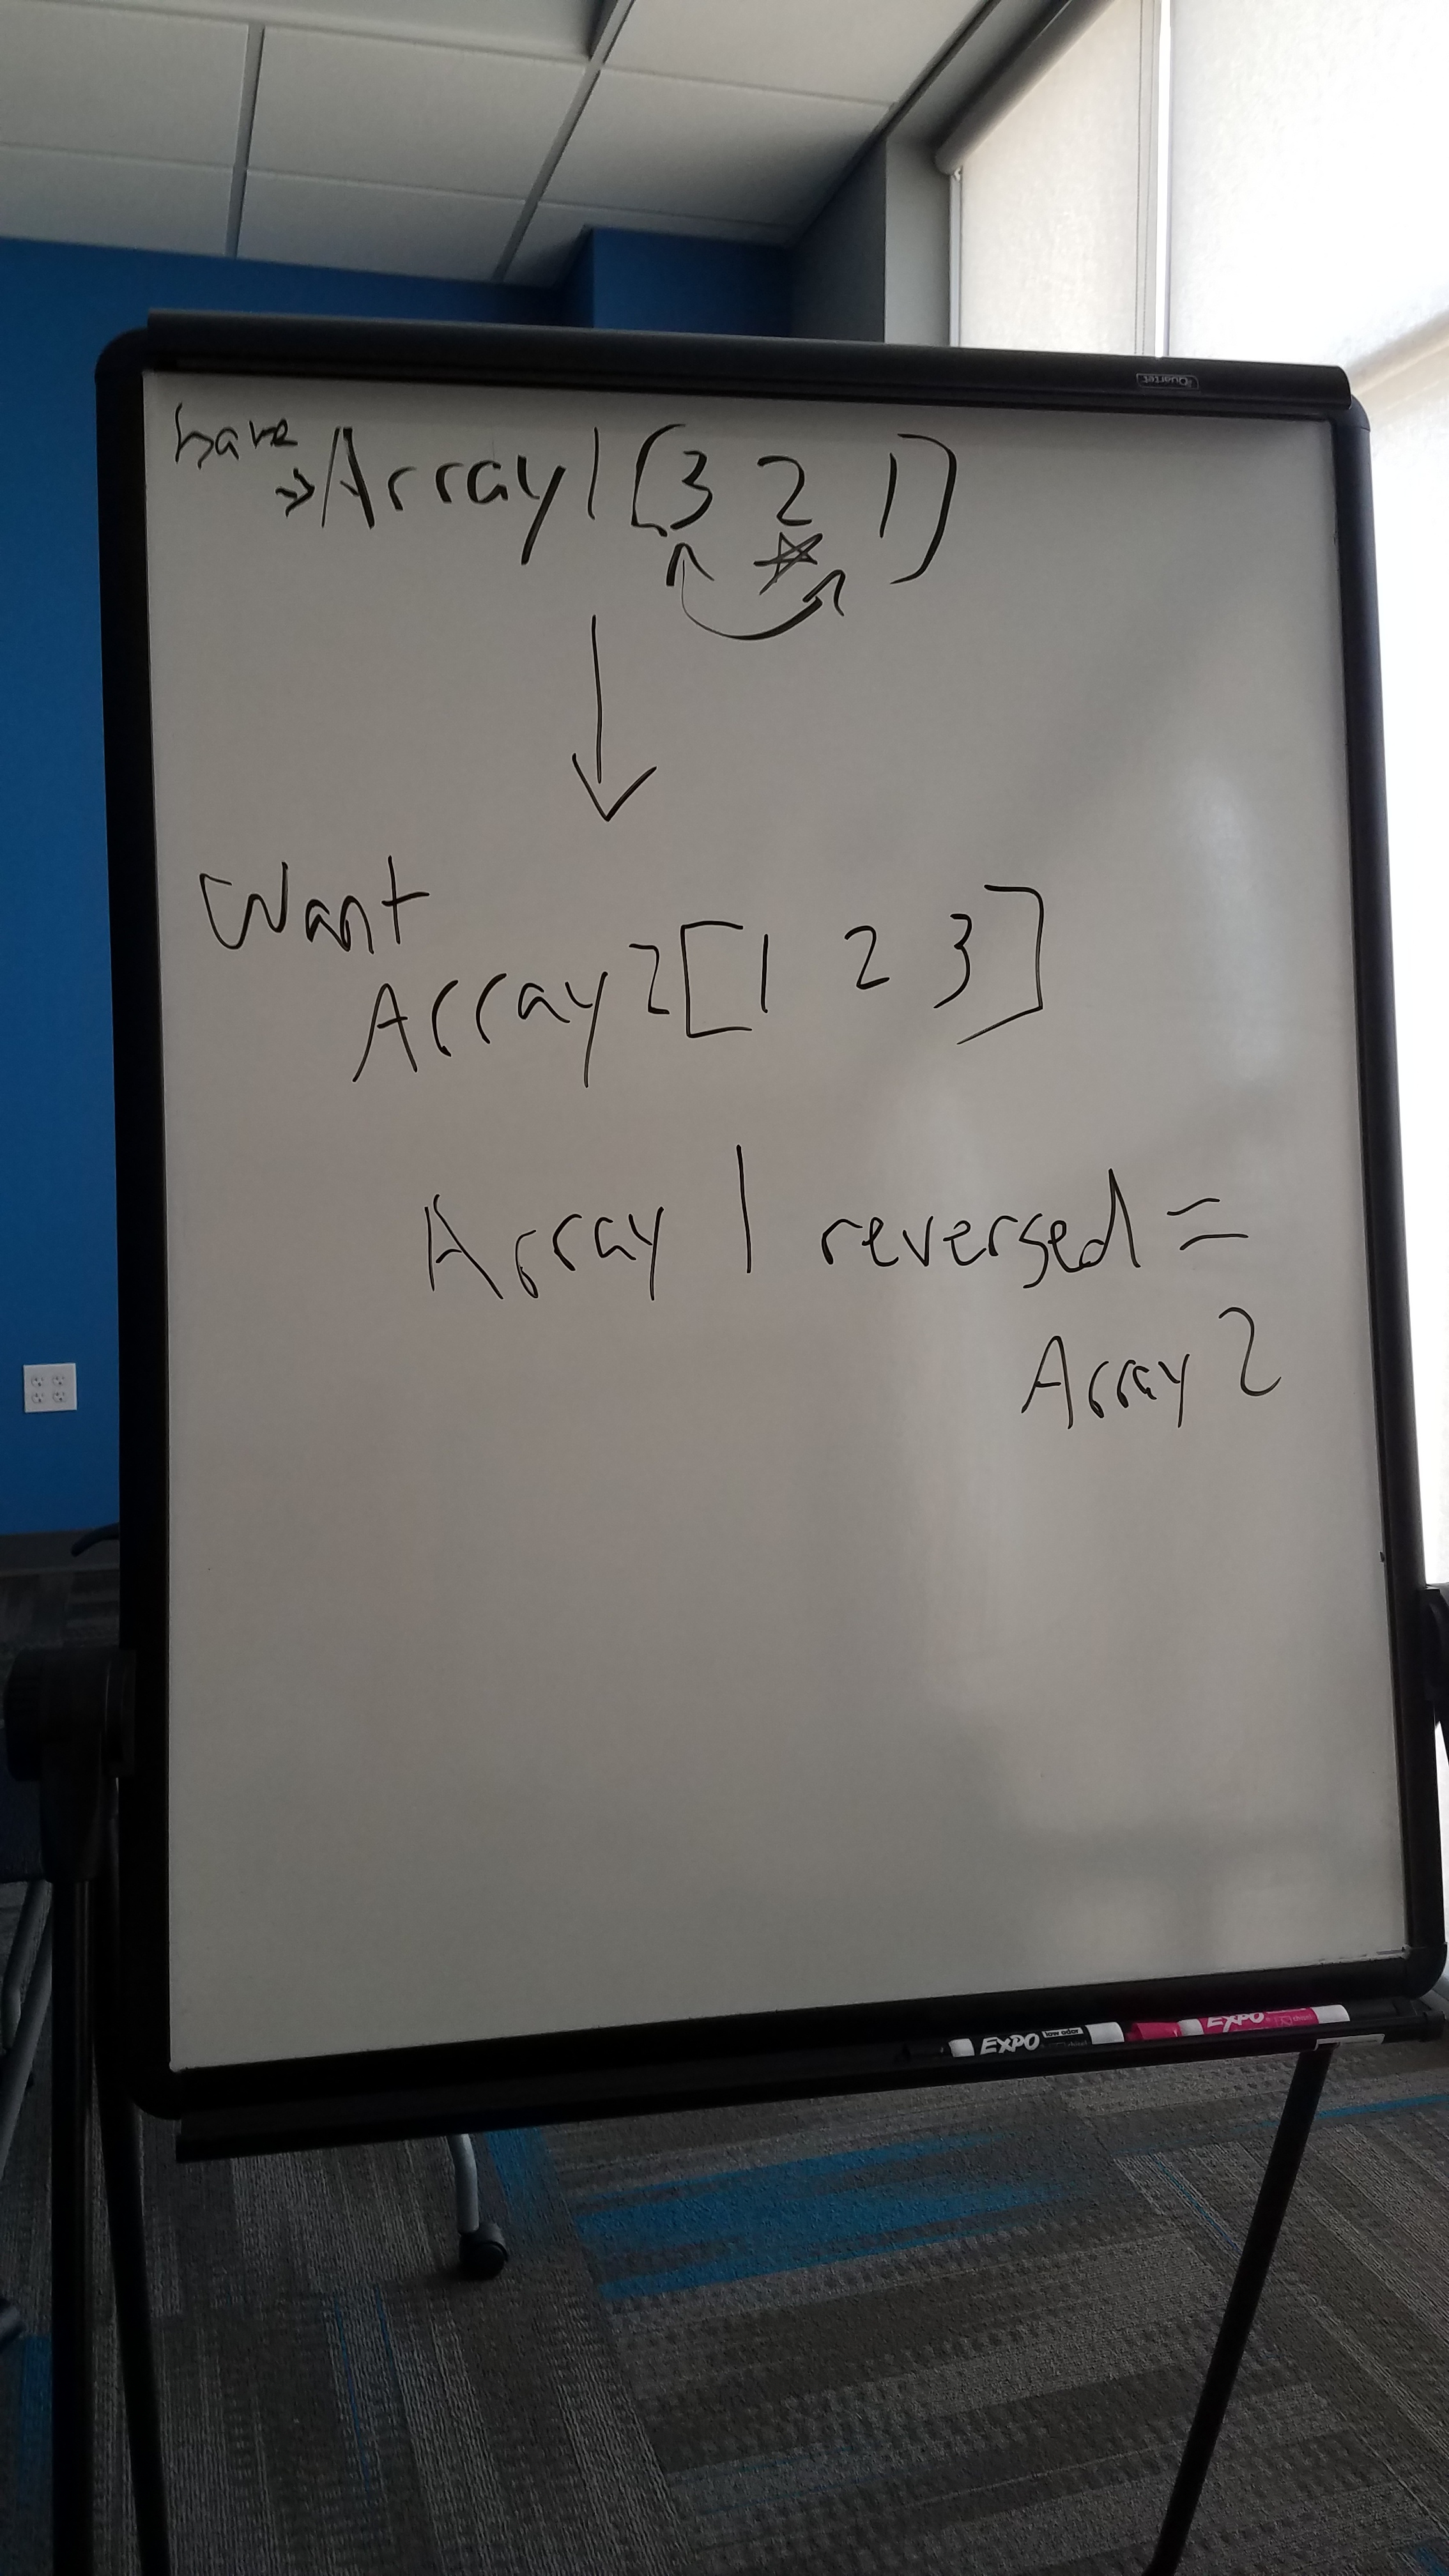 Quartet
have
→Array1[3 2 1]
Want
Array2[1 2 3]
Array 1 reversed =
Array 2
EXPO low odor
EXPO